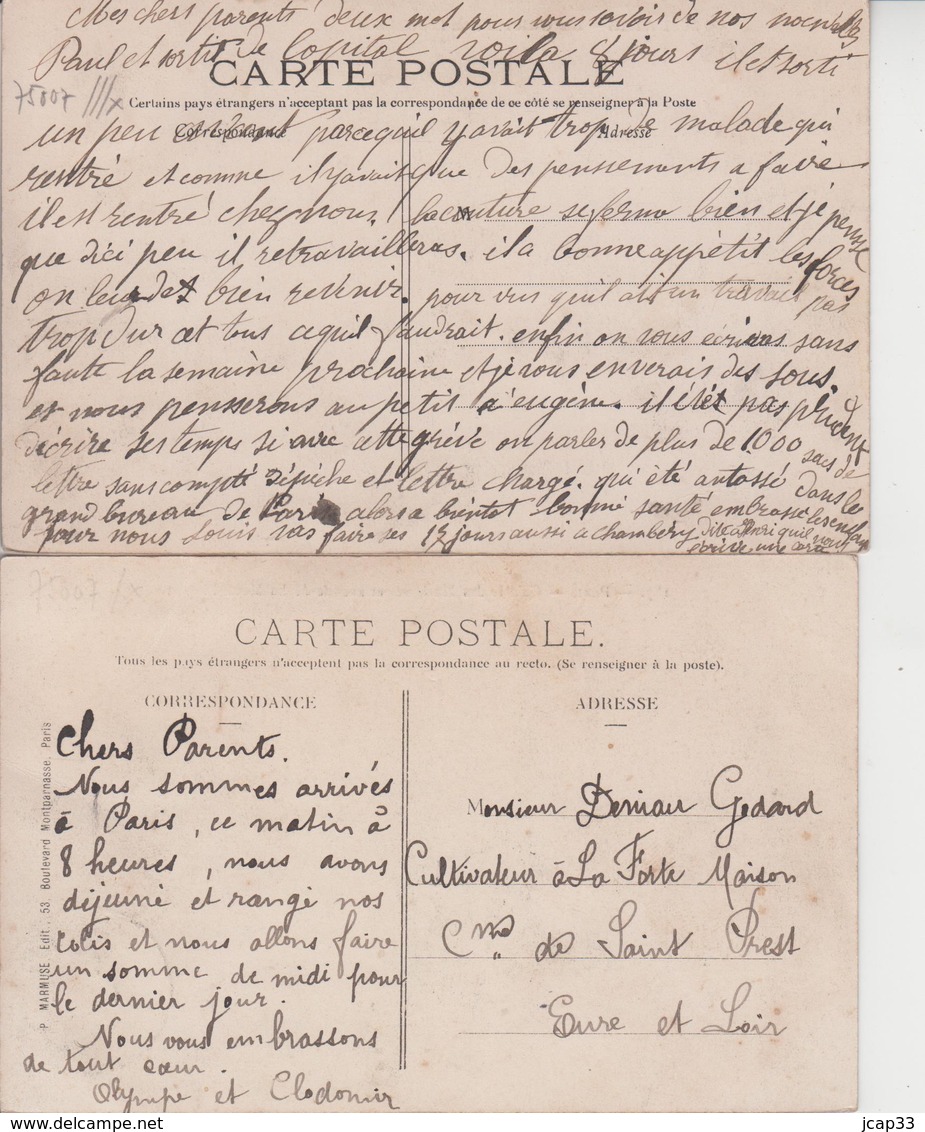 Mes chers parents deux mot pour vous savoir de nos nouvelles
Paul et sortit de lopital voila 8 jours il et sorti
CARTE POSTALE
75007
Certains pays étrangers n'acceptant pas la correspondance de ce côté se renseigner à la Poste
Correspondance Adresse
un peu avant parcequil yavait trop de malade qui
rentré et comme il yavait que des pensements a faire
il est rentré chez nous, la couture se ferme bien et je pense
que dici peu il retravailleras. il a bonne appétit les forces
on bien revenir. pour vus quil ait un travail pas
trop dur cet tous cequil faudrait. enfin on vous écriras sans
faute la semaine prochaine et je vous enverais des sous.
et nous pensserons au petit a eugéne. il étét pas prudent
décrire ses temps si avec cette gréve on parler de plus de 1000 sacs de
lettre sans compté dépéche et lettre chargé. qui été antassé dans le
grand bureau de Paris alors a bientot bonne santé embrasse les enfan
pour nous Louis vas faire ses 17 jours aussi a chambéry dite a Henri quil nous
écrive une carte
CARTE POSTALE.
Tous les pays étrangers n'acceptent pas la correspondance au recto. (Se renseigner à la poste).
CORRESPONDANCE
ADRESSE
P. MARMUSE Edit., 53, Boulevard Montparnasse, Paris
Chers Parents.
Nous sommes arrivés
à Paris, ce matin à
8 heures, nous avons
déjeuné et rangé nos
colis et nous allons faire
un somme de midi pour
le dernier jour.
Nous vous embrassons
de tout cœur.
Olympe et Clodomir
Monsieur Deniau Godard
Cultivateur à La Forte Maison
Cne de Saint Prest
Eure et Loir
jcap33